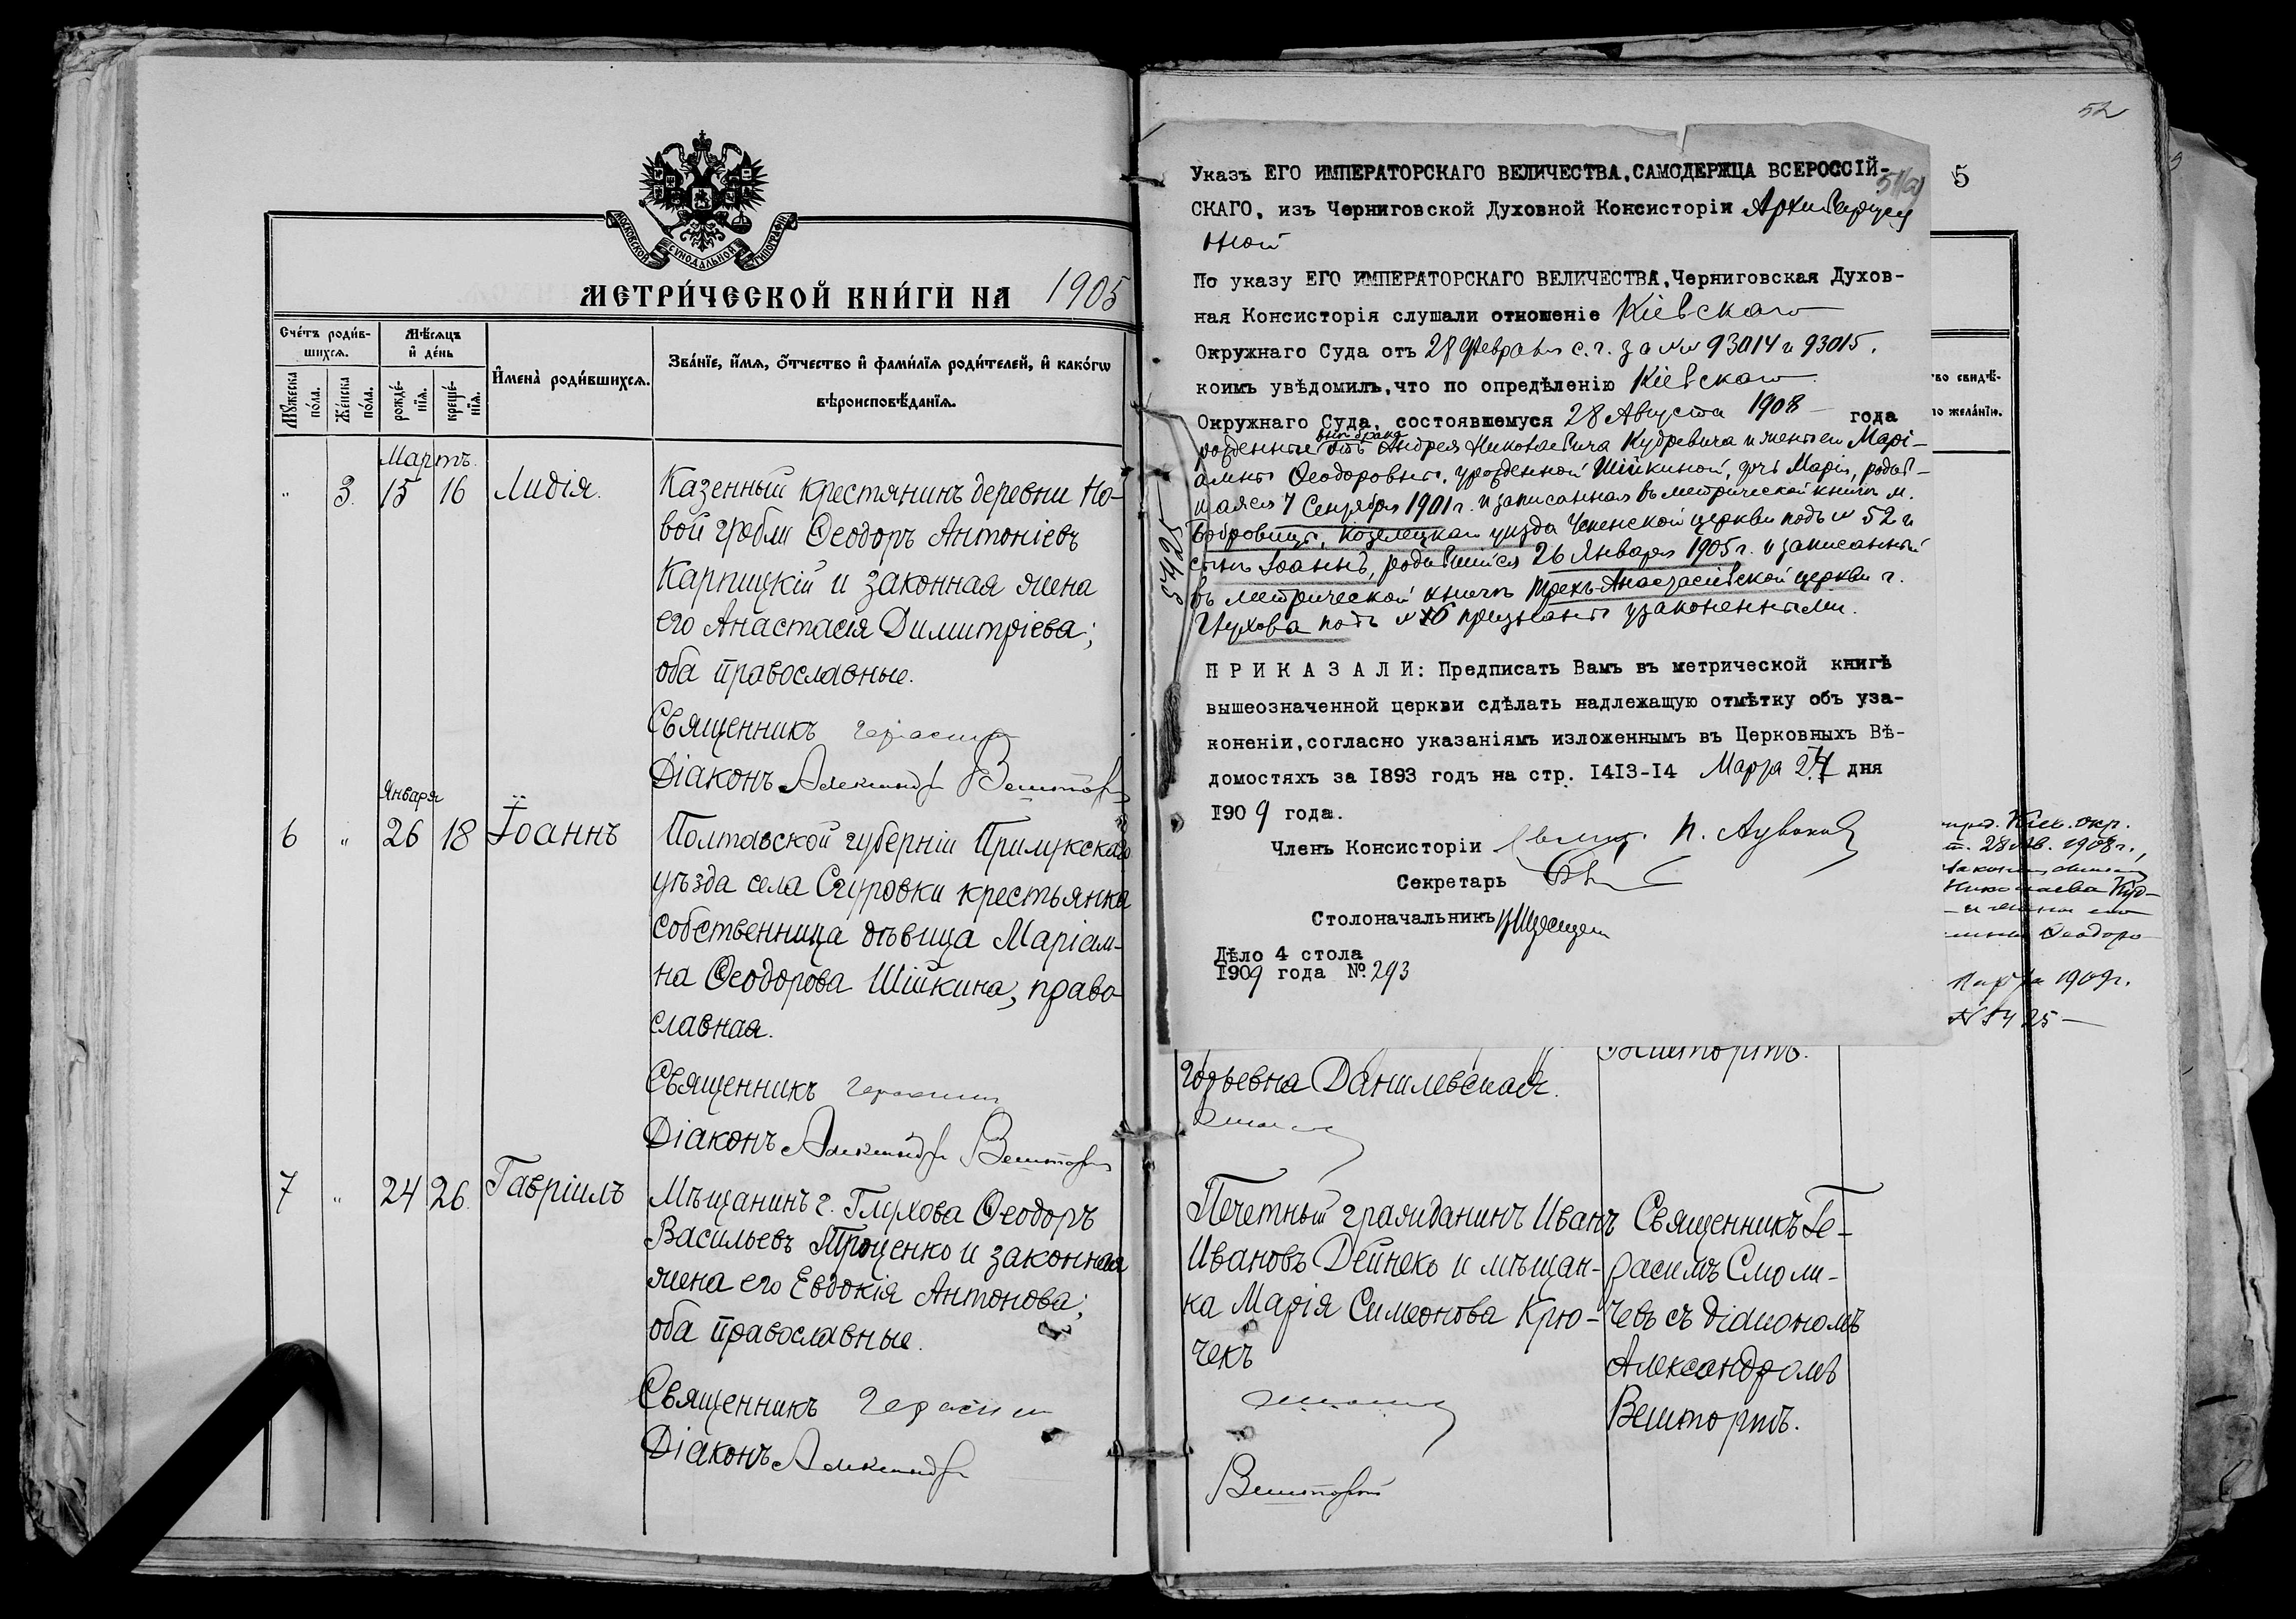 МОСКОВСКОЙ СѴНОДАЛЬНОЙ ТИПОГРАФІИ
МЕТРИ́ЧЕСКОЙ КНИ́ГИ НА 1905
Сче́тъ роди́в-
шихсѧ.
Мꙋ́жеска по́ла.
Же́нска по́ла.
Мѣ́сѧцъ
и҆ де́нь
рожде́-
нїѧ.
креще́-
нїѧ.
И҆мена̀ роди́вшихсѧ.
Зва́нїе, и҆́мѧ, ѻ҆́тчество и҆ фами́лїѧ роди́телей, и҆ како́гѡ
вѣроисповѣ́данїѧ.
Мартъ.
" 3. 15 16 Лидія.
Казенный крестянинъ деревни Но-
вой гребли Ѳеодоръ Антоніевъ
Карпицкій и законная жена
его Анастасія Димитріева;
оба православные.
Священникъ Герасим
Діаконъ Александр Вешторт
Января
6 " 26 18 Іоаннъ
Полтавской губерніи Прилукскаго
уѣзда села Сгуровки крестьянка
собственница дѣвица Маріам-
на Ѳеодорова Шійкина, право-
славная.
Священникъ Герасим
Діаконъ Александр Вешторт
7 " 24 26 Гавріилъ
Мѣщанинъ г. Глухова Ѳеодоръ
Васильевъ Троценко и законная
жена его Евдокія Антонова;
оба православные.
Священникъ Герасим
Діаконъ Александр
52
5
51(а)
Указъ ЕГО ИМПЕРАТОРСКАГО ВЕЛИЧЕСТВА,САМОДЕРЖЦА ВСЕРОССІЙ-
СКАГО, изъ Черниговской Духовной Консисторіи
По указу ЕГО ИМПЕРАТОРСКАГО ВЕЛИЧЕСТВА,Черниговская Духов-
ная Консисторія слушали отношеніе Кіевскаго
Окружнаго Суда отъ 28 Февраля с.г. за №№ 93014 и 93015,
коимъ увѣдомилъ,что по опредѣленію Кіевскаго
Окружнаго Суда, состоявшемуся 28 Августа 1908 года
рожденные внѣ брака отъ Андрея Николаевича Кудревича и жены его Марі-
амны Ѳеодоровны, урожденной Шійкиной, дочь Марія, родив-
шаяся 7 Сентября 1901 г. и записанная въ метрической книгѣ м.
Бобровицы, Козелецкаго уѣзда Успенской церкви подъ № 52 и
сынъ Іоаннъ, родившійся 26 Января 1905 г. и записанный
въ метрической книгѣ Трехъ-Анастасіевской церкви г.
Глухова подъ № 6 признаны узаконенными.
5425
ПРИКАЗАЛИ: Предписать Вамъ въ метрической книгѣ
вышеозначенной церкви сдѣлать надлежащую отмѣтку объ уза-
коненіи,согласно указаніямъ изложеннымъ въ Церковныхъ Вѣ-
домостяхъ за 1893 годъ на стр. 1413-14 Марта 24 дня
1909 года.
Членъ Консисторіи
Секретарь
Столоначальникъ
Дѣло 4 стола
1909 года №.293
во свидѣ-
о жела́нїю.
пред. Кіев. окр.
28 Ав. 1908 г.,
Николаева Куд-
и жены его
Ѳеодоро-
Марта 1909 г.
№ 5425
Вештортъ.
горьевна Данилевская.
Почетный гражданинъ Иванъ
Ивановъ Дейнека и мѣщан-
ка Марія Симеонова Крю-
чекъ
Вешторт
Священникъ Ге-
расимъ Смоли-
чевъ съ діакономъ
Александромъ
Вештортъ.